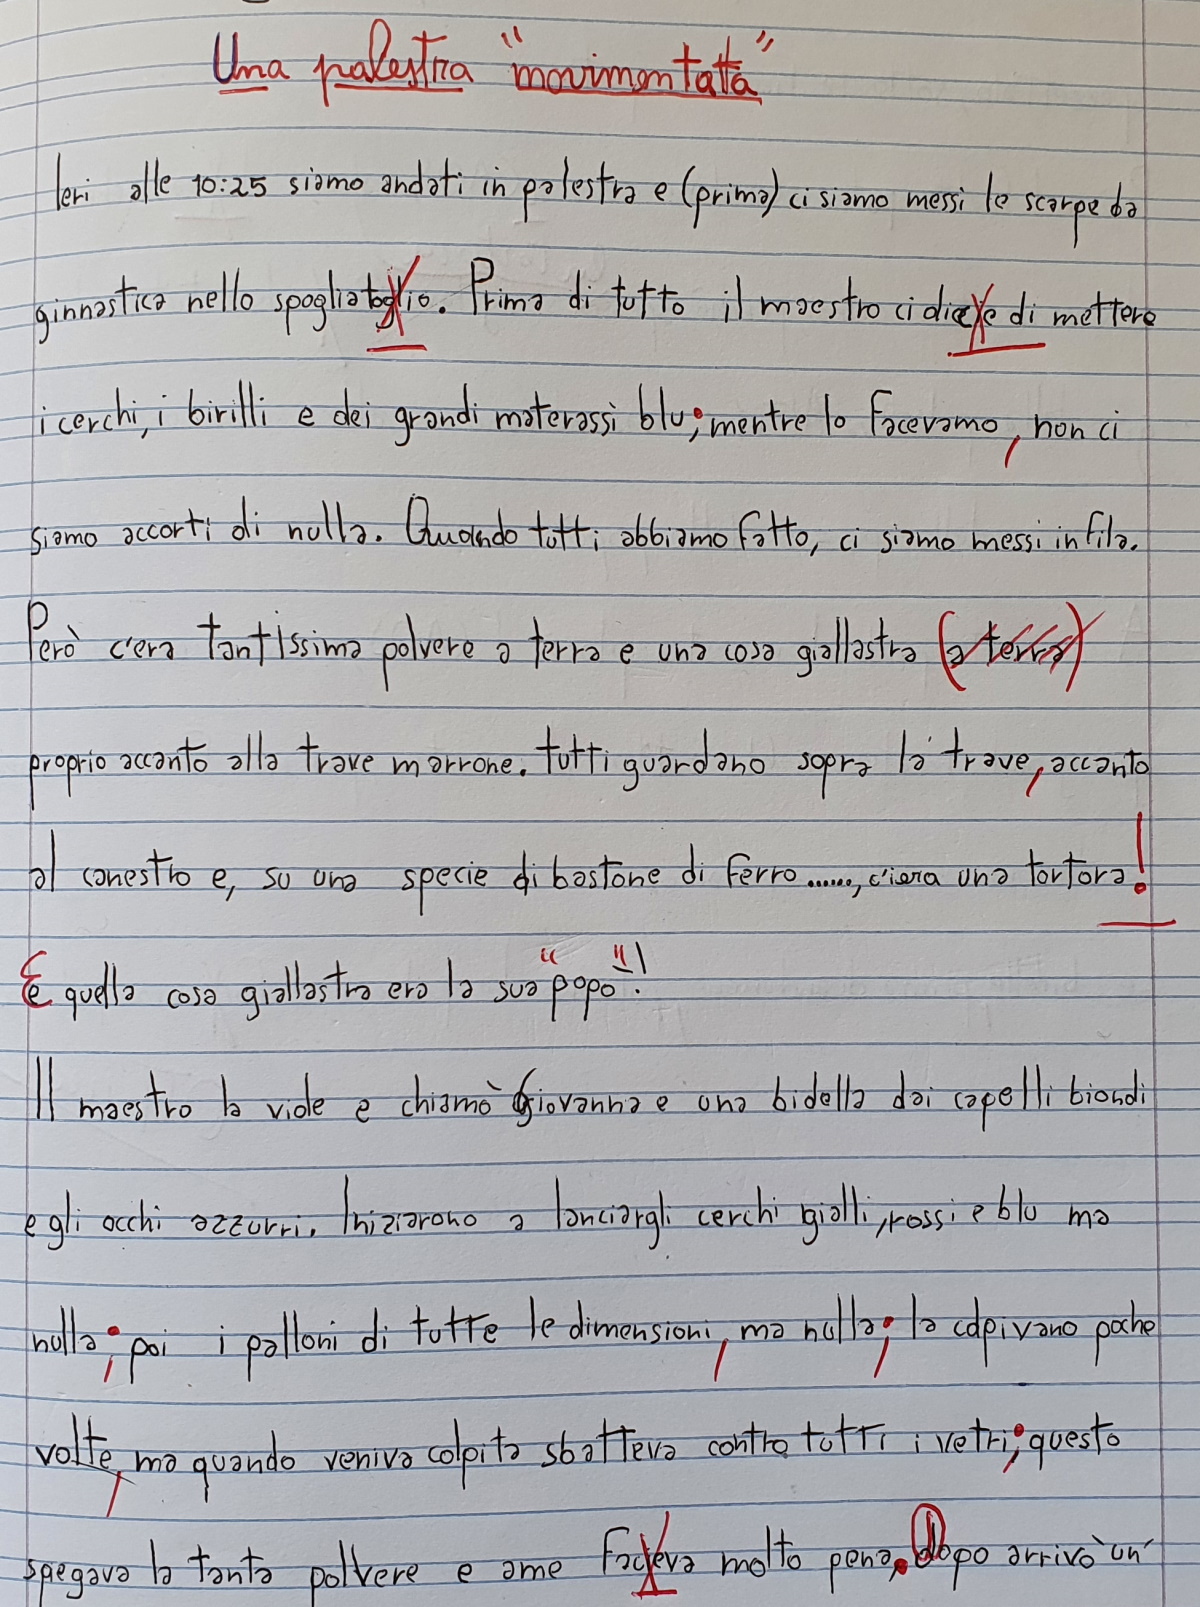 Una palestra "movimentata"
Ieri alle 10:25 siamo andati in palestra e (prima) ci siamo messi le scarpe da
ginnastica nello spogliatoglio. Prima di tutto il maestro ci dice di mettere
i cerchi, i birilli e dei grandi materassi blu; mentre lo facevamo, non ci
siamo accorti di nulla. Quando tutti abbiamo fatto, ci siamo messi in fila.
Però c'era tantissima polvere a terra e una cosa giallastra (a terra)
proprio accanto alla trave marrone. tutti guardano sopra la trave, accanto
al canestro e, su una specie di bastone di ferro ......, c'iera una tortora!
E quella cosa giallastra era la sua "popò"!
Il maestro la vide e chiamò Giovanna e una bidella dai capelli biondi
e gli occhi azzurri. Iniziarono a lanciargli cerchi gialli, rossi e blu ma
nulla; poi i palloni di tutte le dimensioni, ma nulla; la colpivano poche
volte, ma quando veniva colpita sbatteva contro tutti i vetri; questo
spegava la tanta polvere e ame facieva molto pena. Dopo arrivò un'